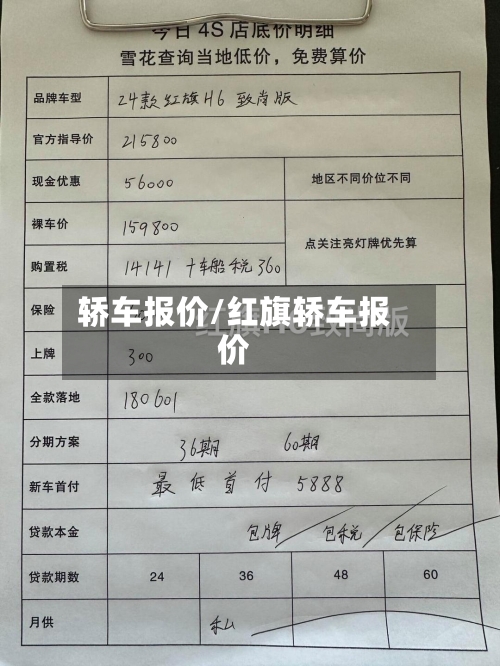 今日4S店底价明细
雪花查询当地低价，免费算价
品牌车型 24款红旗H6 致尚版
官方指导价 215800
现金优惠 56000 地区不同价位不同
裸车价 159800
点关注亮灯牌优先算
购置税 14141 十车船税360
保险
轿车报价/红旗轿车报
价
红旗H6致尚版
上牌 300
全款落地 180601
分期方案 36期 60期
新车首付 最低首付 5888
贷款本金 包牌 包税 包保险
贷款期数 24 36 48 60
月供